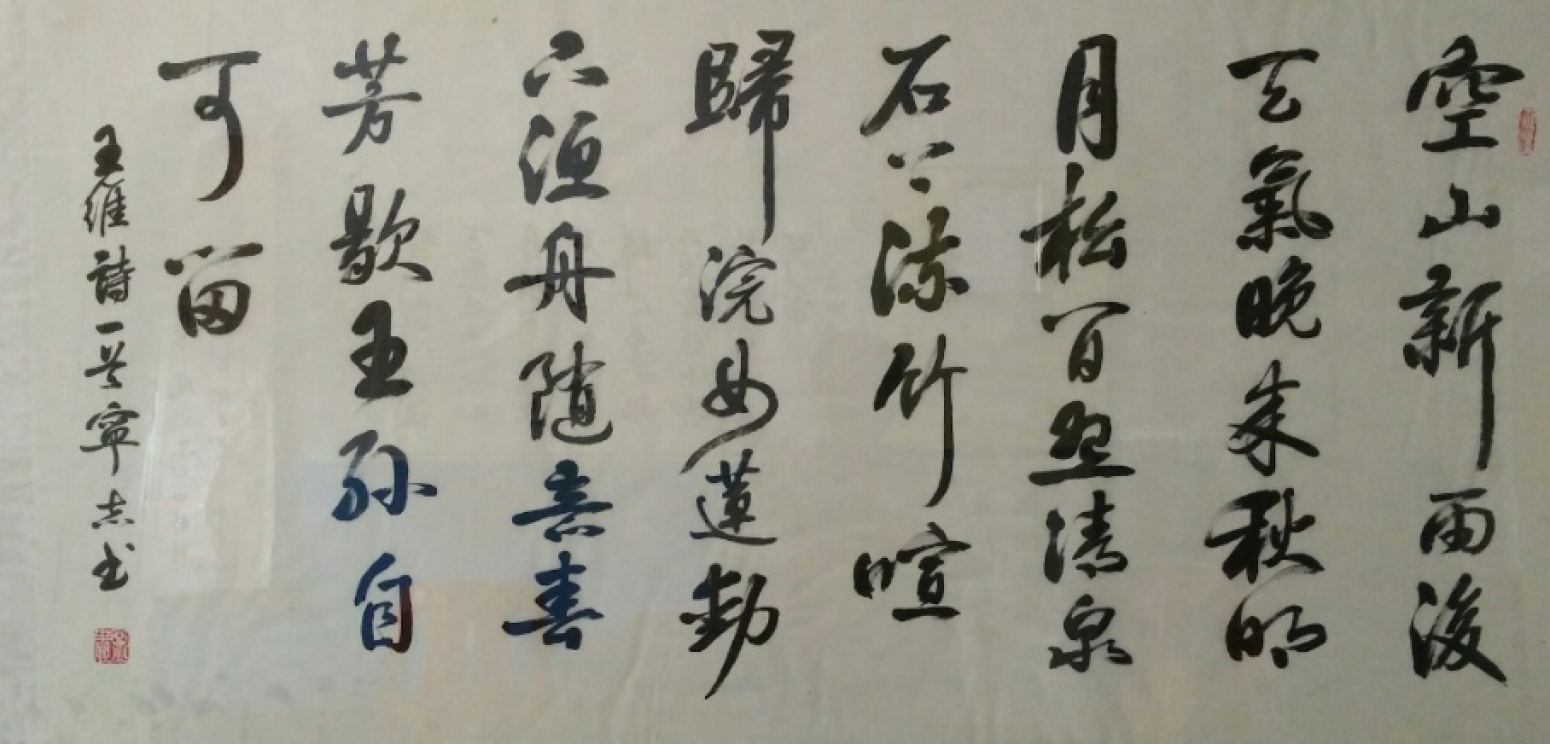 空山新雨後
天氣晚来秋明
月松間照清泉
石上流竹喧
歸浣女蓮動
下渔舟随意春
芳歇王孫自
可留
王維詩一首寧志书